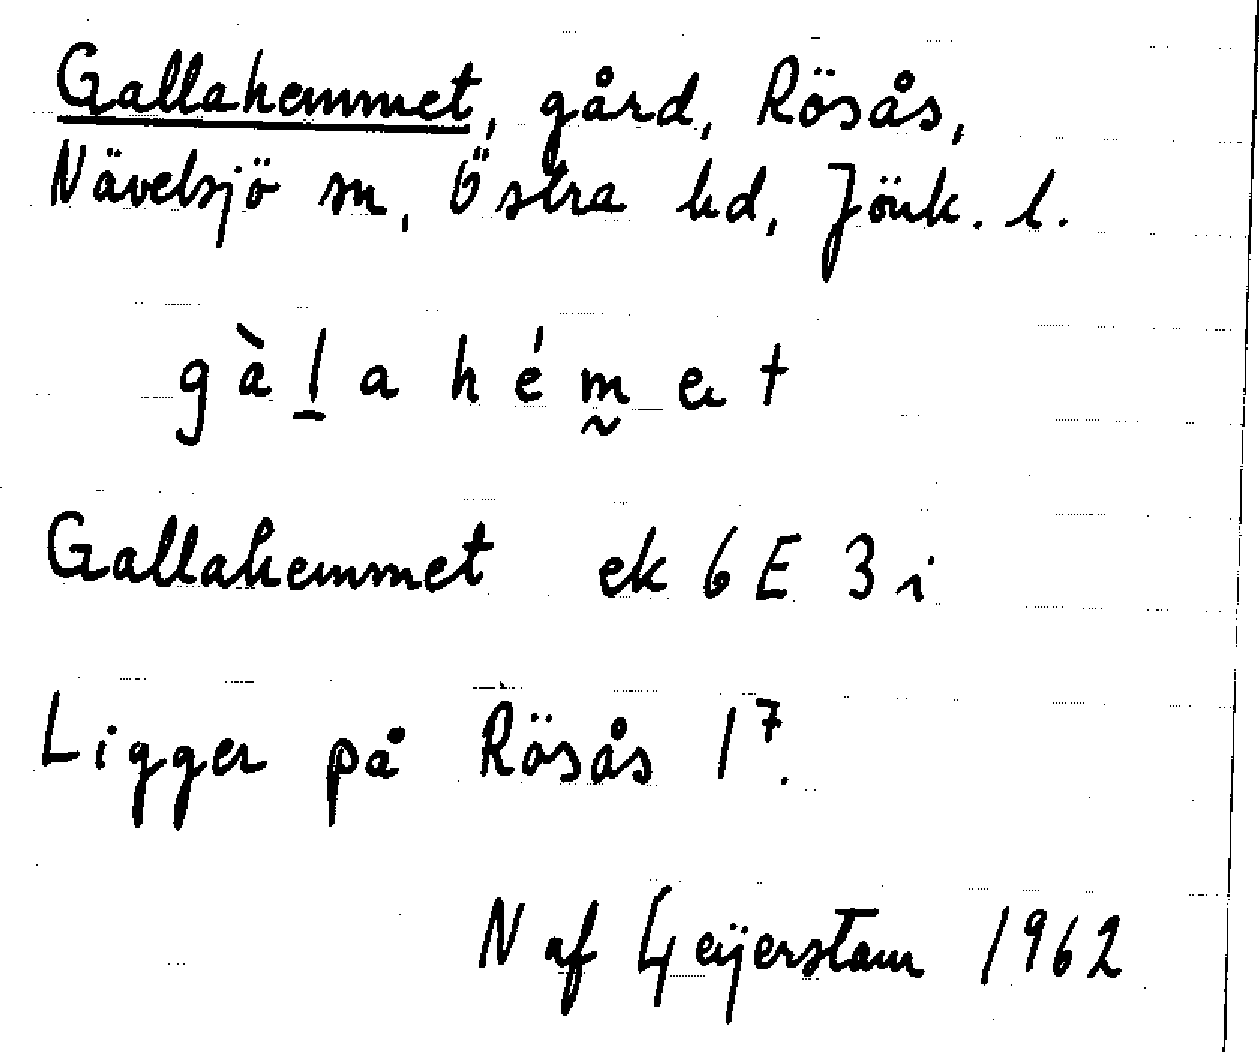 Gallahemmet, gård, Rösås,
Nävelsjö sn, Östra hd, Jönk. l.
gàl̲ahém̰et
Gallahemmet ek 6 E 3 i
Ligger på Rösås 1⁷.
N af Geijerstam 1962